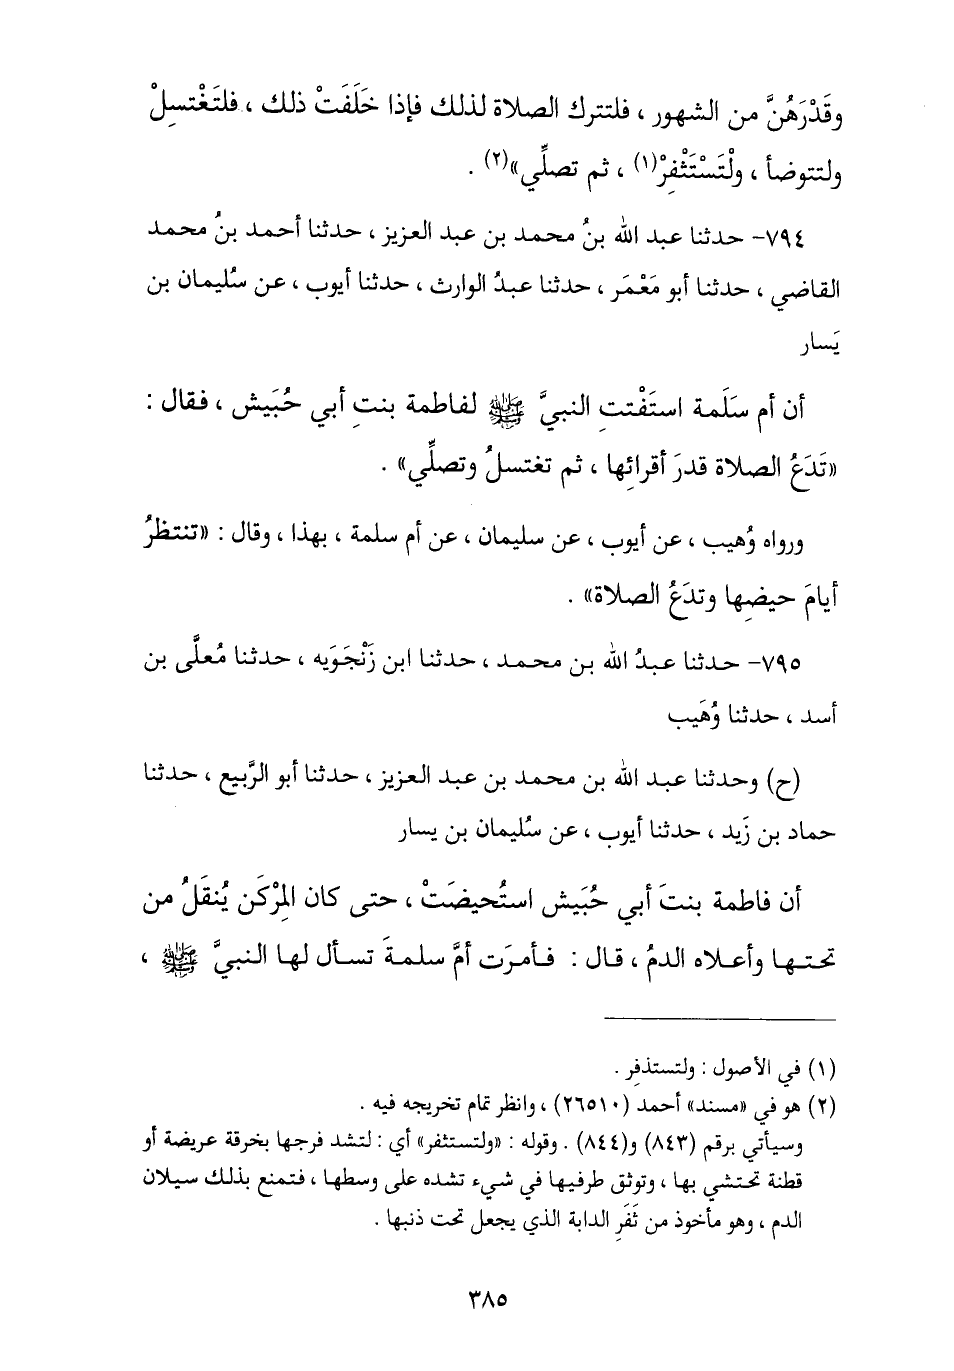 وقَدْرَهُنَّ من الشهور ، فلتترك الصلاة لذلك فإذا خَلَفَتْ ذلك ، فلتَغْتسِلْ
ولتتوضأ ، ولْتَسْتَثْفِرْ(١) ، ثم تصلِّي»(٢) .
٧٩٤- حدثنا عبد الله بنُ محمد بن عبد العزيز ، حدثنا أحمد بنُ محمد
القاضي ، حدثنا أبو مَعْمَر ، حدثنا عبدُ الوارث ، حدثنا أيوب ، عن سُليمان بن
يَسار
أن أم سَلَمة استَفْتتِ النبيَّ ﷺ لفاطمة بنتِ أبي حُبَيش ، فقال :
«تَدَعُ الصلاة قدرَ أقرائِها ، ثم تغتسلُ وتصلِّي» .
ورواه وُهيب ، عن أيوب ، عن سليمان ، عن أم سلمة ، بهذا ، وقال : «تنتظرُ
أيامَ حيضِها وتدَعُ الصلاة» .
٧٩٥- حدثنا عبدُ الله بن محمد ، حدثنا ابن زَنْجَوَيه ، حدثنا مُعلَّى بن
أسد ، حدثنا وُهَيب
(ح) وحدثنا عبد الله بن محمد بن عبد العزيز ، حدثنا أبو الرَّبيع ، حدثنا
حماد بن زَيد ، حدثنا أيوب ، عن سُليمان بن يسار
أن فاطمة بنتَ أبي حُبَيش استُحيضَتْ ، حتى كان المِرْكَن يُنقَلُ من
تحتها وأعلاه الدمُ ، قال : فأمرَت أمَّ سلمةَ تسأل لها النبيَّ ﷺ ،
(١) في الأصول : ولتستذفِر .
(٢) هو في «مسند» أحمد (٢٦٥١٠) ، وانظر تمام تخريجه فيه .
وسيأتي برقم (٨٤٣) و(٨٤٤) . وقوله : «ولتستثفر» أي : لتشد فرجها بخرقة عريضة أو
قطنة تحتشي بها ، وتوثق طرفيها في شيء تشده على وسطها ، فتمنع بذلك سيلان
الدم ، وهو مأخوذ من ثَفَرِ الدابة الذي يجعل تحت ذنبها .
٣٨٥